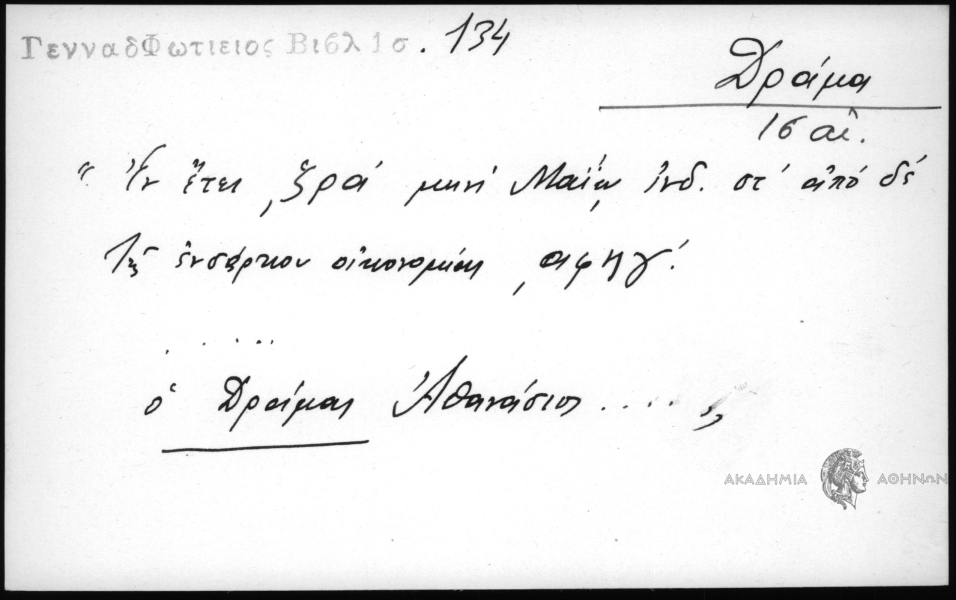 ΓενναδΦωτιειος Βιβλ 1σ. 134
Δράμα
16 αἰ.
"Ἐν ἔτει ͵ζρά μηνί Μαΐῳ ἰνδ. στ' ἀπό δέ
τῆς ἐνσάρκου οἰκονομίας ͵αφηγ'.
. . . . .
ὁ Δράμας Ἀθανάσιος . . . . "
ΑΚΑΔΗΜΙΑ ΑΘΗΝΩΝ